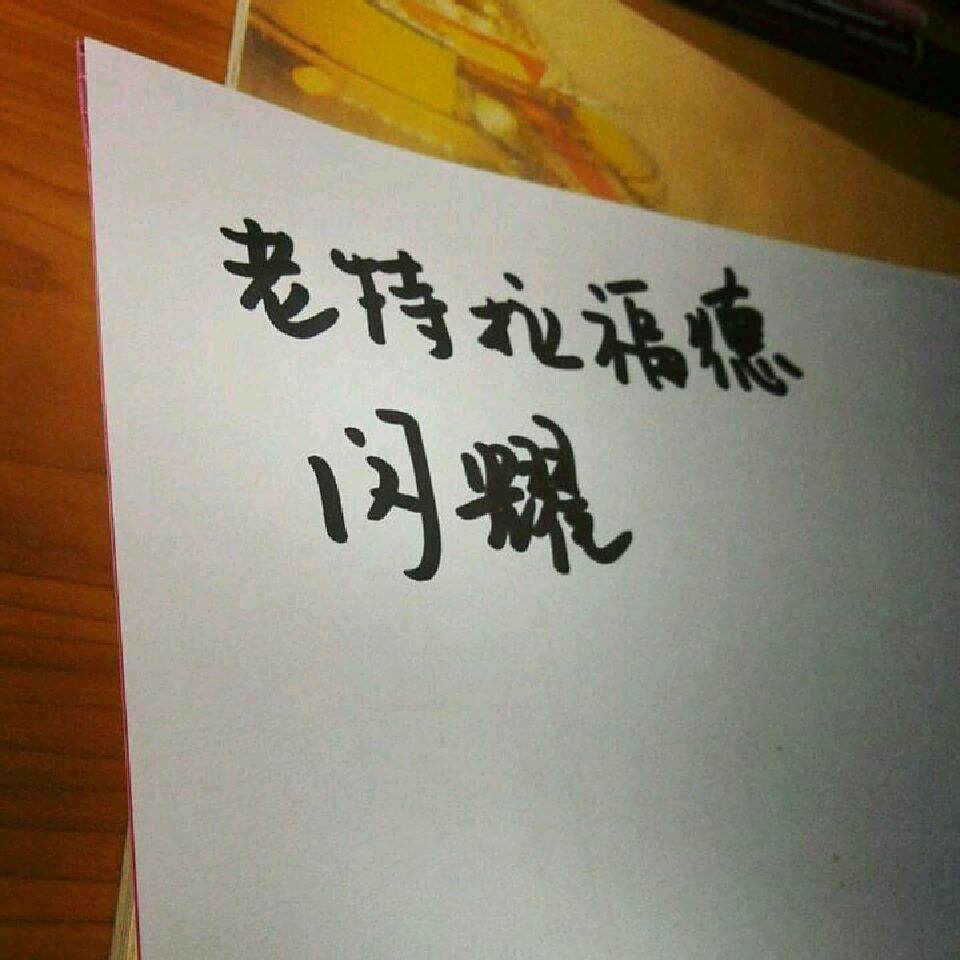 老特拉福德
闪耀